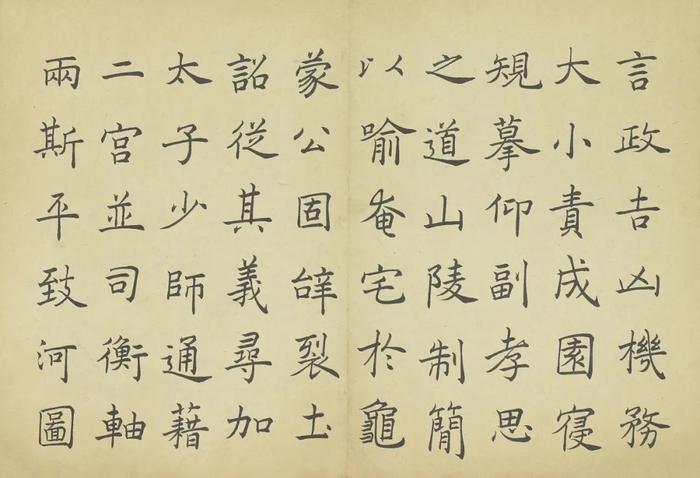 言政吉凶機務
大小責成園寑
䂓摹仰副孝思
之道山陵制簡
以喻奄宅於龜
蒙公固辝裂圡
詔從其義尋加
太子少師通藉
二宮並司衡軸
兩斯平致河圖